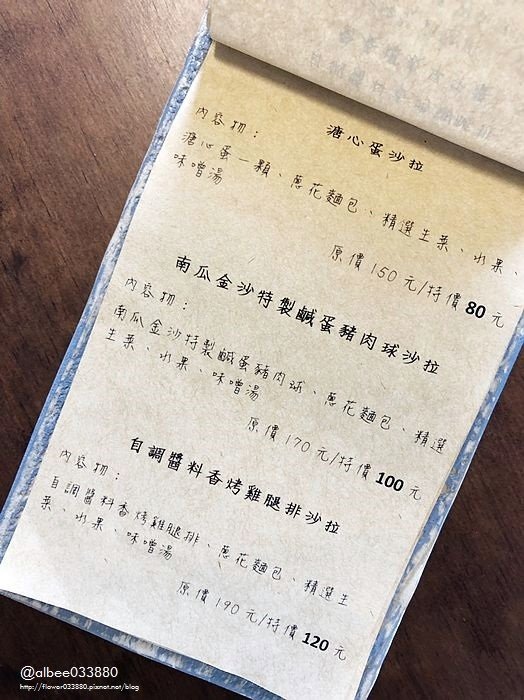 溏心蛋沙拉
內容物：
溏心蛋一顆、蔥花麵包、精選生菜、水果、
味噌湯
原價150元/特價80元
南瓜金沙特製鹹蛋豬肉球沙拉
內容物：
南瓜金沙特製鹹蛋豬肉球、蔥花麵包、精選
生菜、水果、味噌湯
原價170元/特價100元
自調醬料香烤雞腿排沙拉
內容物：
自調醬料香烤雞腿排、蔥花麵包、精選生
菜、水果、味噌湯
原價190元/特價120元
@albee033880
http://flower033880.pixnet.net/blog